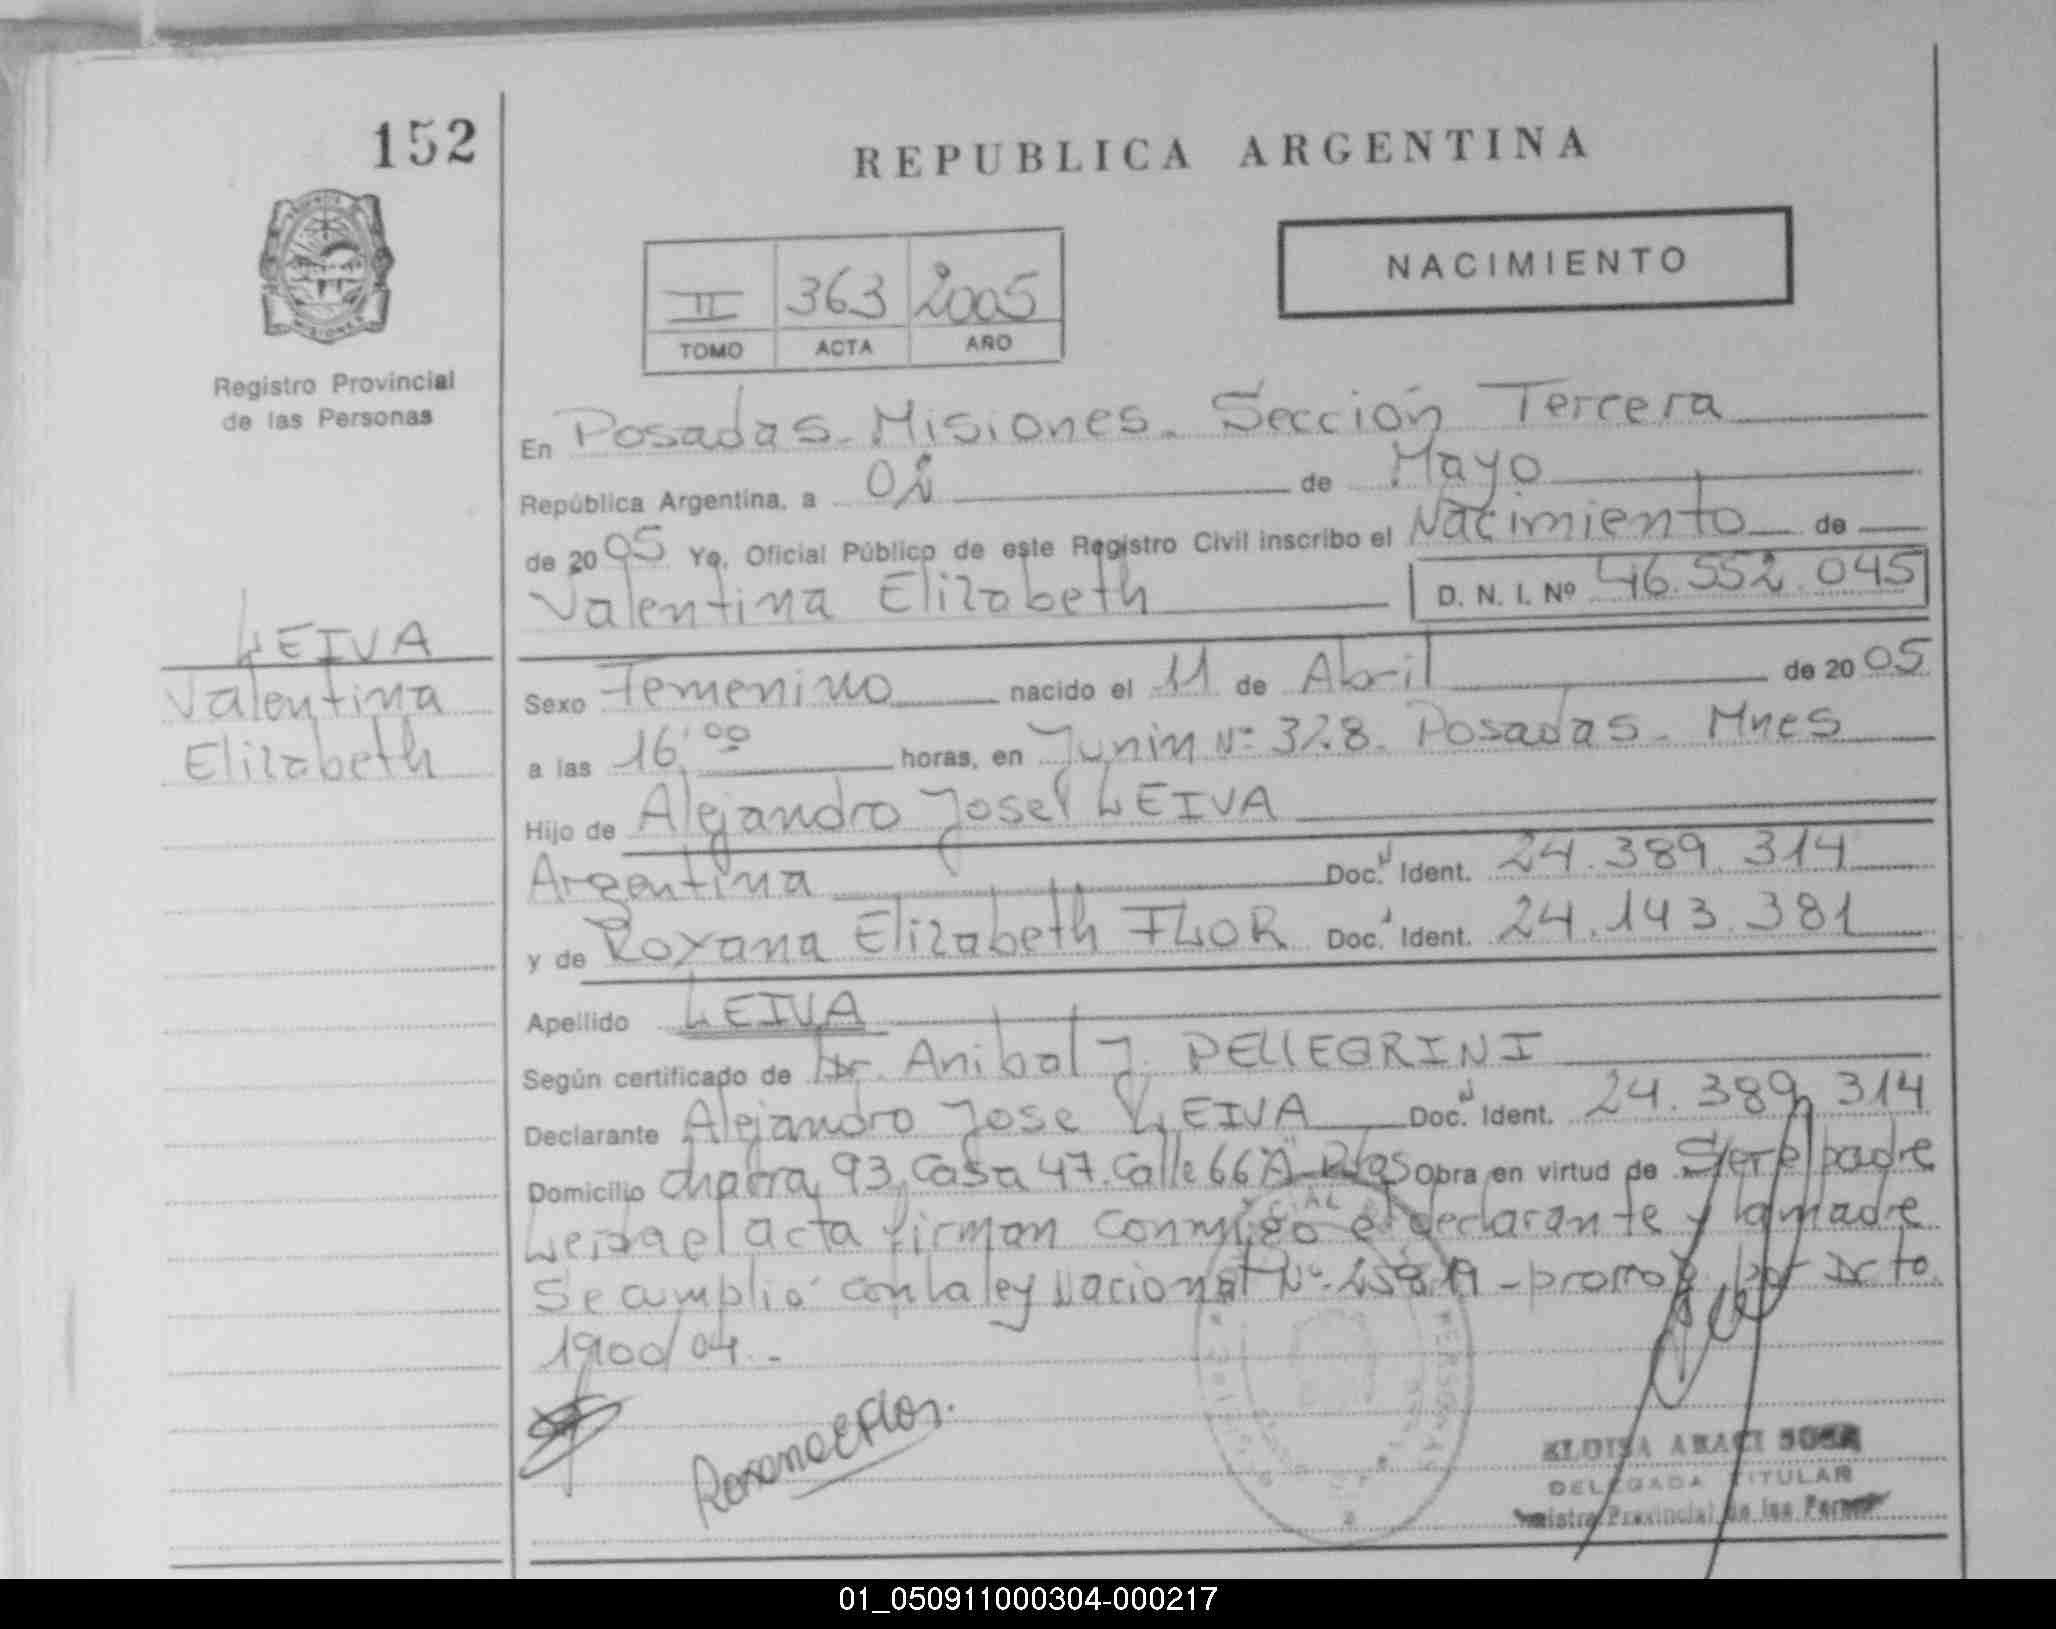 152
REPUBLICA ARGENTINA
MISIONES
Registro Provincial
de las Personas
NACIMIENTO
II 363 2005
TOMO ACTA AÑO
En Posadas - Misiones - Sección Tercera
República Argentina, a 02 de Mayo
de 2005 Yo, Oficial Público de este Registro Civil inscribo el Nacimiento de
Valentina Elizabeth D. N. I. Nº 46.552.045
LEIVA
Valentina
Elizabeth
Sexo Femenino nacido el 11 de Abril de 2005
a las 16,00 horas, en Junin Nº 328. Posadas - Mnes
Hijo de Alejandro José LEIVA
Argentina Doc. Ident. 24.389.314
y de Roxana Elizabeth FLOR Doc. Ident. 24.143.381
Apellido LEIVA
Según certificado de Dr. Anibal J. PELLEGRINI
Declarante Alejandro Jose LEIVA Doc. Ident. 24.389.314
Domicilio chacra 93, Casa 47. Calle 66 "A" - Pdas Obra en virtud de Ser el padre
Leida el acta firman conmigo el declarante y la madre
Se cumplió con la ley Nacional Nº por Dcto
1900/04.-
Roxana E Flor.
DELEGADA TITULAR
Provincial de las
01_050911000304-000217